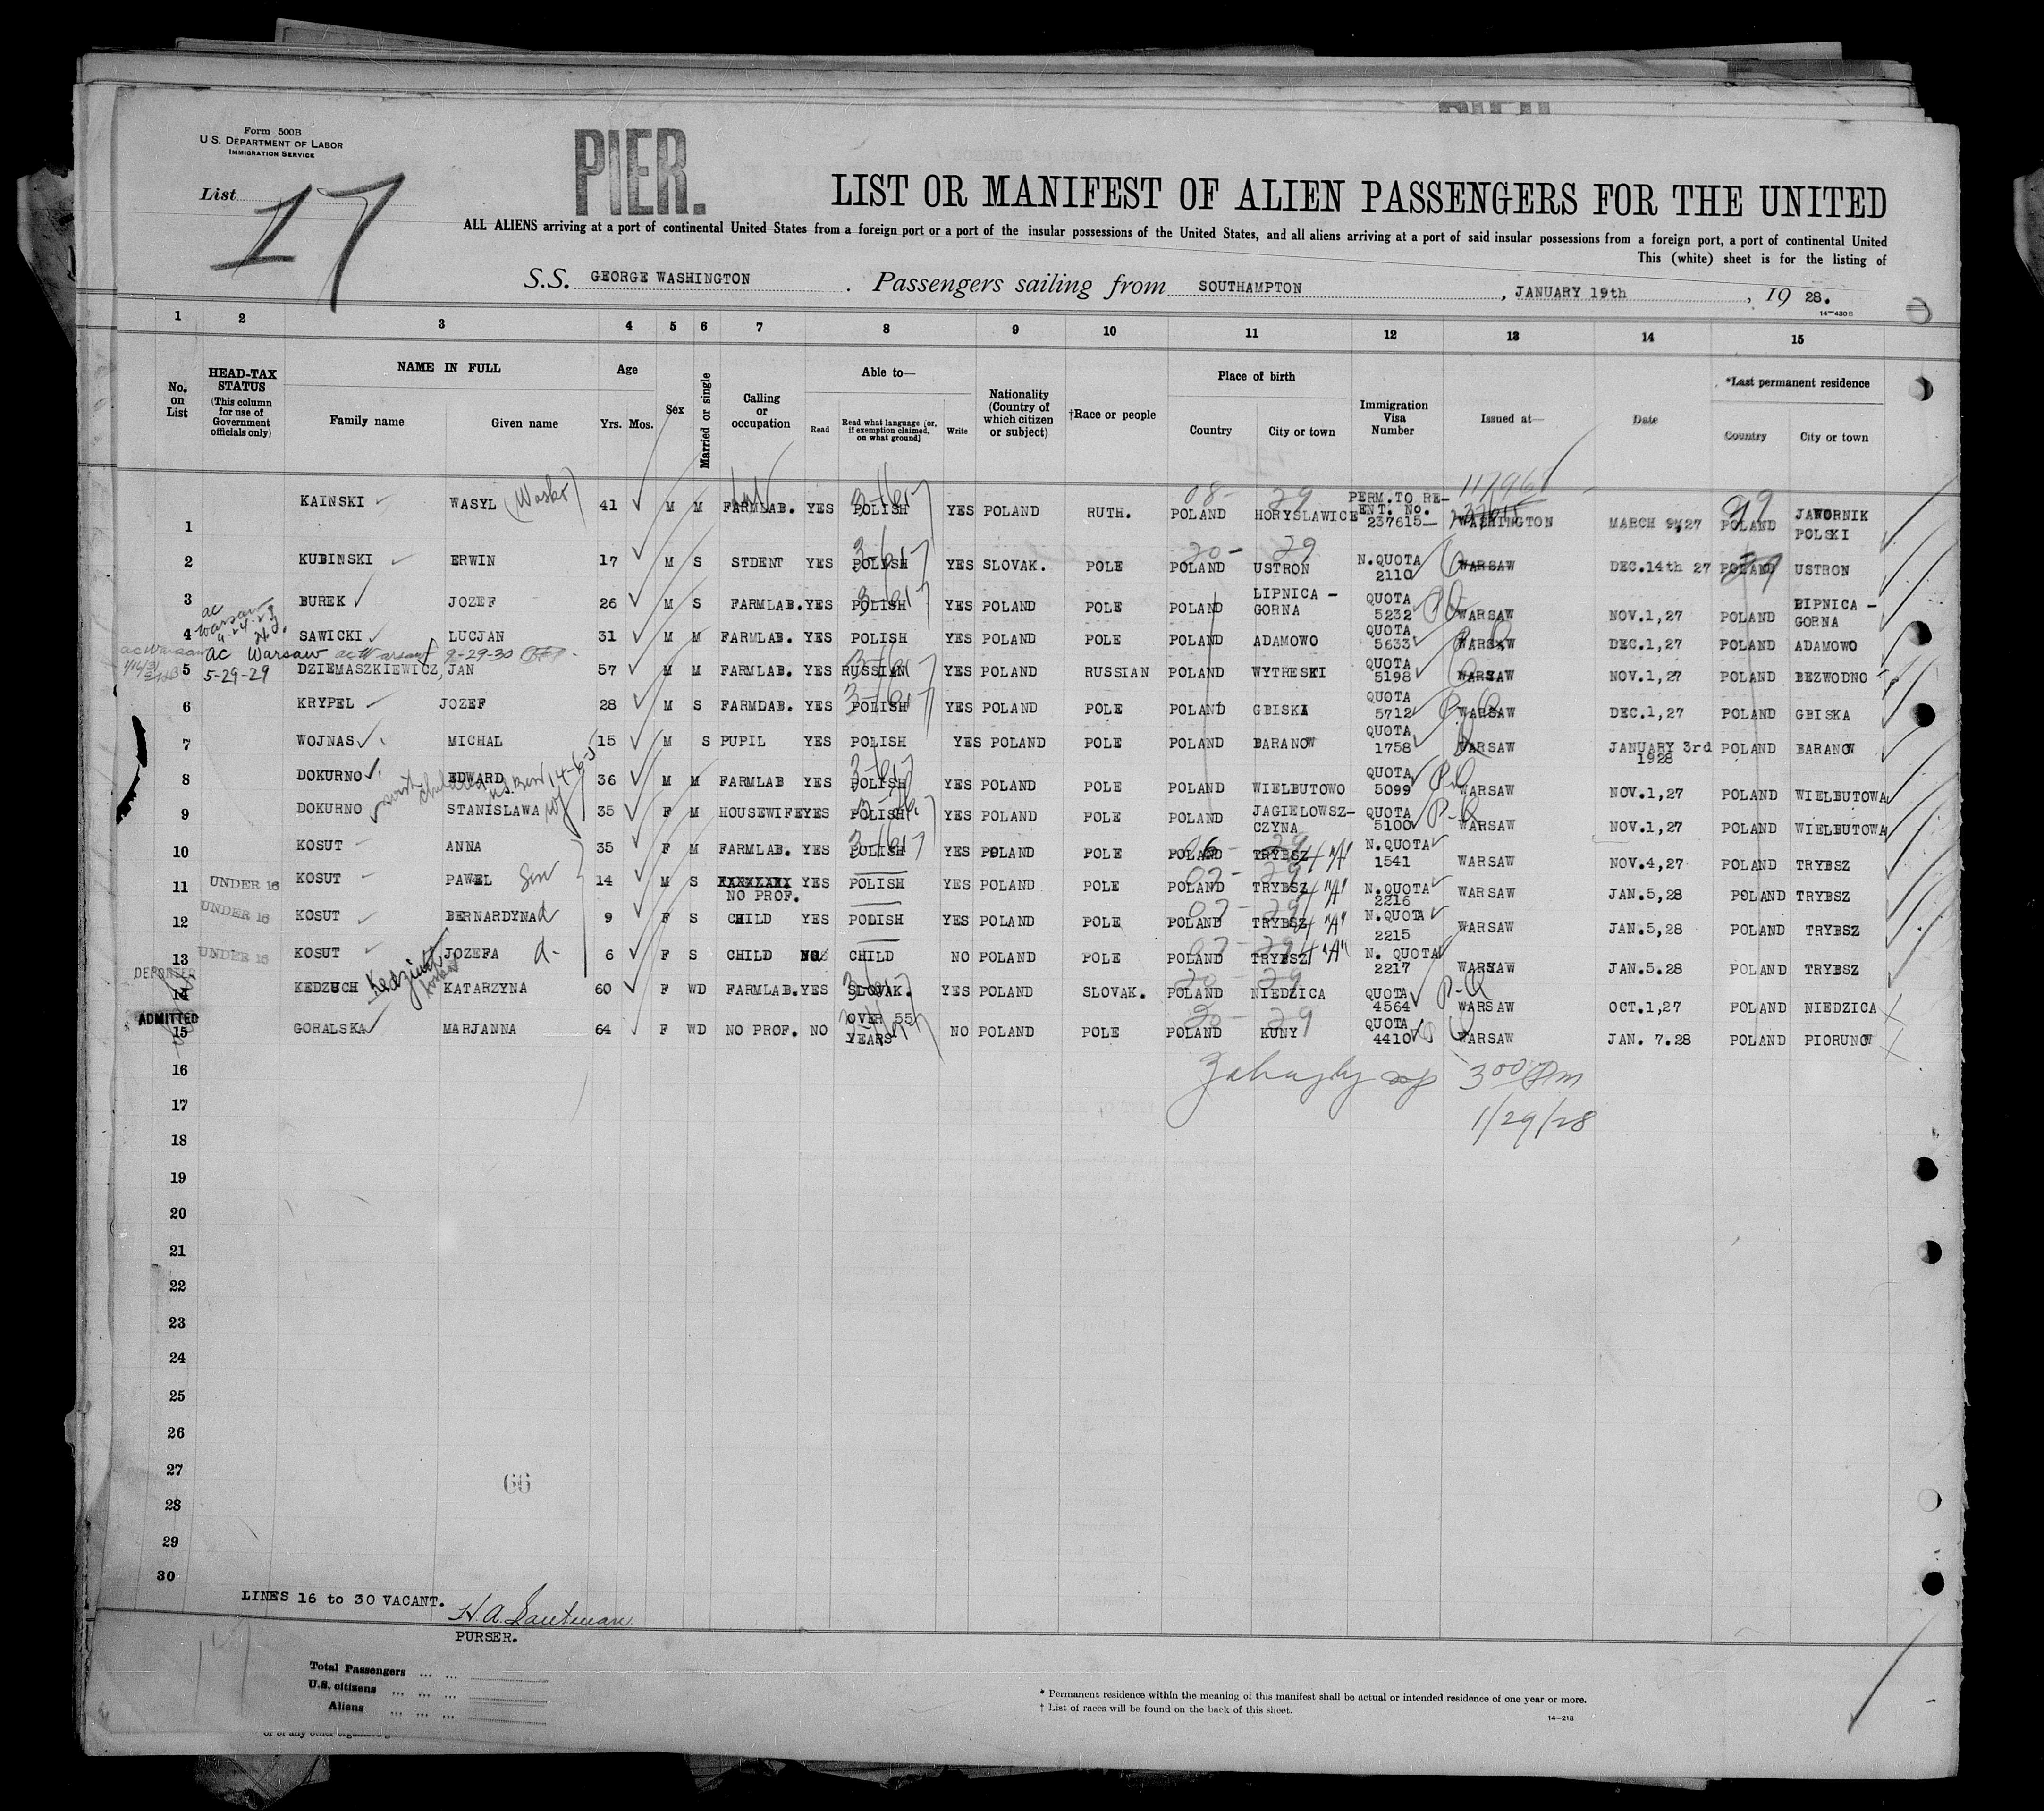 Form 500B
U.S. DEPARTMENT OF LABOR
IMMIGRATION SERVICE
List 17
PIER.
LIST OR MANIFEST OF ALIEN PASSENGERS FOR THE UNITED
ALL ALIENS arriving at a port of continental United States from a foreign port or a port of the insular possessions of the United States, and all aliens arriving at a port of said insular possessions from a foreign port, a port of continental United
This (white) sheet is for the listing of
S.S. GEORGE WASHINGTON . Passengers sailing from SOUTHAMPTON , JANUARY 19th , 19 28.
14—430B
1 2 3 4 5 6 7 8 9 10 11 12 13 14 15
No. on List
HEAD-TAX STATUS (This column for use of Government officials only)
NAME IN FULL
Family name Given name
Age
Yrs. Mos.
Sex
Married or single
Calling or occupation
Able to—
Read
Read what language [or, if exemption claimed, on what ground]
Write
Nationality (Country of which citizen or subject)
†Race or people
Place of birth
Country City or town
Immigration Visa Number
Issued at—
Date
*Last permanent residence
Country City or town
1 KAINSKI WASYL (Wasko) 41 M M FARMLAB. YES POLISH YES POLAND RUTH. POLAND HORYSLAWICE PERM.TO RE-ENT. No. 237615— WASHINGTON MARCH 9,27 POLAND JAWORNIK POLSKI
2 KUBINSKI ERWIN 17 M S STDENT YES POLISH YES SLOVAK. POLE POLAND USTRON N.QUOTA 2110 WARSAW DEC.14th 27 POLAND USTRON
3 BUREK JOZEF 26 M S FARMLAB. YES POLISH YES POLAND POLE POLAND LIPNICA – GORNA QUOTA 5232 WARSAW NOV.1,27 POLAND LIPNICA – GORNA
ac Warsaw 9-24-29
4 SAWICKI LUCJAN 31 M M FARMLAB. YES POLISH YES POLAND POLE POLAND ADAMOWO QUOTA 5633 WARSAW DEC.1,27 POLAND ADAMOWO
ac Warsaw ac Warsaw ac Warsaw 9-29-30
5 5-29-29 DZIEMASZKIEWICZ, JAN 57 M M FARMLAB. YES RUSSIAN YES POLAND RUSSIAN POLAND WYTRESKI QUOTA 5198 WARSAW NOV.1,27 POLAND BEZWODNO
6 KRYPEL JOZEF 28 M S FARMDAB. YES POLISH YES POLAND POLE POLAND GBISKA QUOTA 5712 WARSAW DEC.1,27 POLAND GBISKA
7 WOJNAS MICHAL 15 M S PUPIL YES POLISH YES POLAND POLE POLAND BARANOW QUOTA 1758 WARSAW JANUARY 3rd 1928 POLAND BARANOW
8 DOKURNO EDWARD 36 M M FARMLAB YES POLISH YES POLAND POLE POLAND WIELBUTOWO QUOTA 5099 P-Q WARSAW NOV.1,27 POLAND WIELBUTOWA
9 DOKURNO STANISLAWA wf 35 F M HOUSEWIFE YES POLISH YES POLAND POLE POLAND JAGIELOWSZ-CZYNA QUOTA 5100 P-Q WARSAW NOV.1,27 POLAND WIELBUTOWA
10 KOSUT ANNA 35 F M FARMLAB. YES POLISH YES POLAND POLE POLAND TRYBSZ N.QUOTA 1541 WARSAW NOV.4,27 POLAND TRYBSZ
11 UNDER 16 KOSUT PAWEL Son 14 M S NO PROF. YES POLISH YES POLAND POLE POLAND TRYBSZ N.QUOTA 2216 WARSAW JAN.5,28 POLAND TRYBSZ
12 UNDER 16 KOSUT BERNARDYNA d 9 F S CHILD YES POLISH YES POLAND POLE POLAND TRYBSZ N.QUOTA 2215 WARSAW JAN.5,28 POLAND TRYBSZ
13 UNDER 16 KOSUT JOZEFA d- 6 F S CHILD NO CHILD NO POLAND POLE POLAND TRYBSZ N. QUOTA 2217 WARSAW JAN.5.28 POLAND TRYBSZ
DEPORTED
14 KEDZUCH KATARZYNA 60 F WD FARMLAB. YES SLOVAK. YES POLAND SLOVAK. POLAND NIEDZICA QUOTA 4564 P-Q WARSAW OCT.1,27 POLAND NIEDZICA
ADMITTED
15 GORALSKA MARJANNA 64 F WD NO PROF. NO OVER 55 YEARS NO POLAND POLE POLAND KUNY QUOTA 4410 WARSAW JAN. 7.28 POLAND PIORUNOW
16 3 00 Pm
17 1/29/28
18
19
20
21
22
23
24
25
26
27
66
28
29
30
LINES 16 to 30 VACANT.
PURSER.
17
Total Passengers ... ...
U.S. citizens ... ... ...
Aliens ... ... ...
* Permanent residence within the meaning of this manifest shall be actual or intended residence of one year or more.
† List of races will be found on the back of this sheet.
14—213